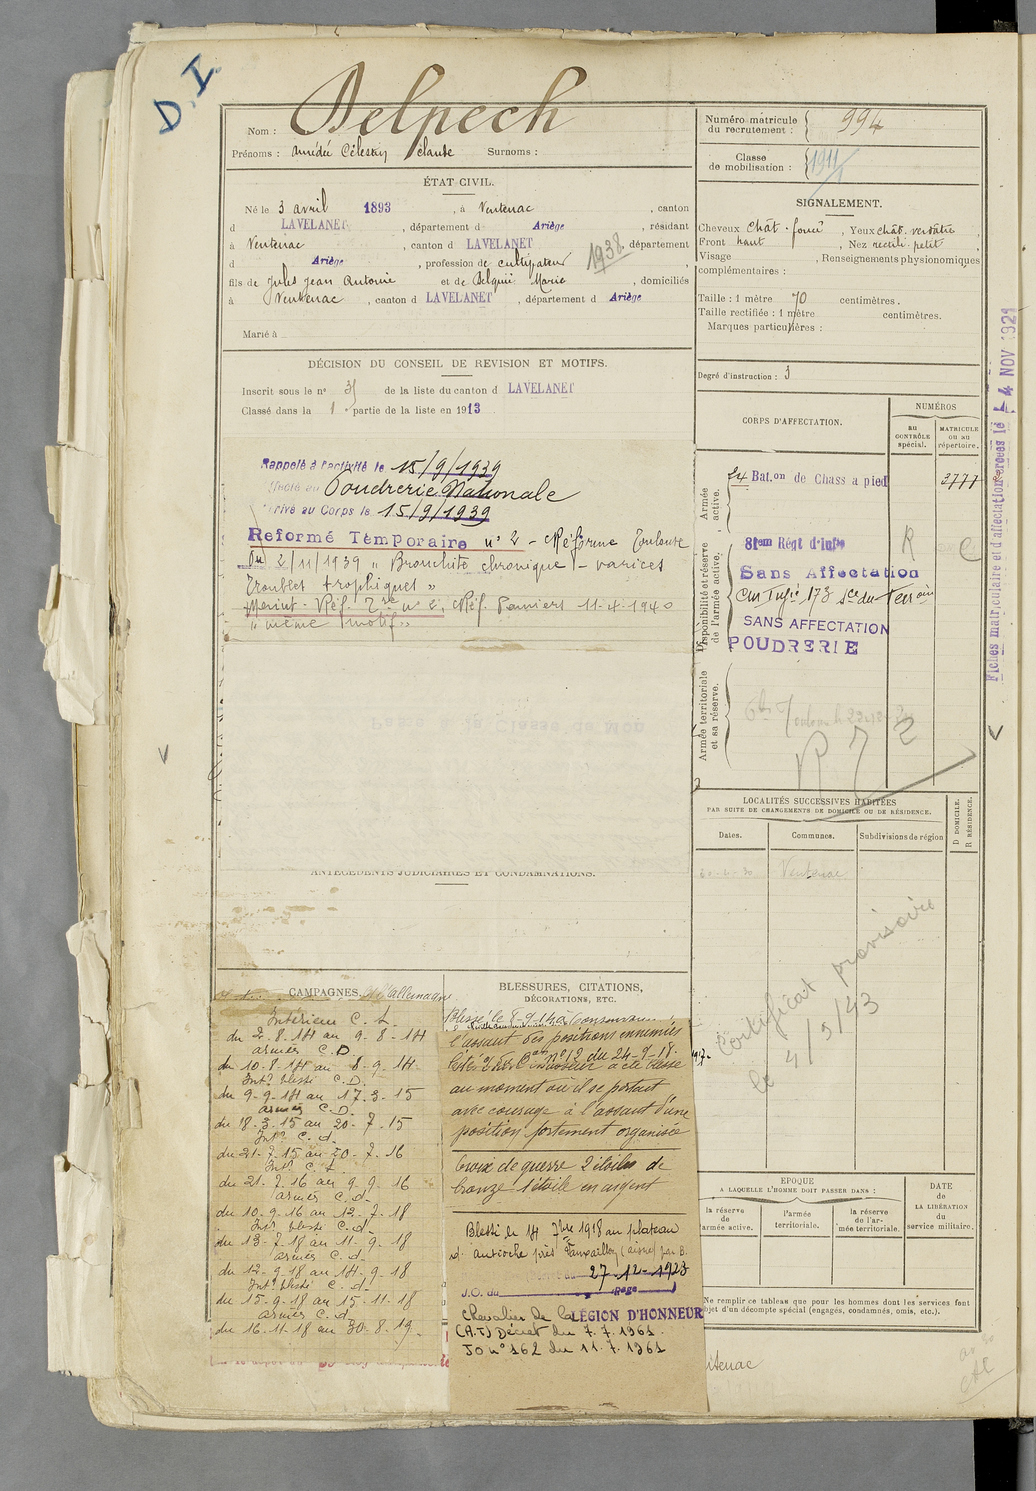 D.I.
Nom : Delpech
Prénoms : Amédée Célestin Claude Surnoms :
ÉTAT CIVIL.
Né le 3 avril 1893, à Ventenac, canton
d LAVELANET, département d Ariège, résidant
à Ventenac, canton d LAVELANET, département
d Ariège, profession de cultivateur
1938.
fils de Jules Jean Antoine et de Delguié Marie, domiciliés
à Ventenac, canton d LAVELANET, département d Ariège
Marié à
DÉCISION DU CONSEIL DE REVISION ET MOTIFS.
Inscrit sous le n° de la liste du canton d LAVELANET
Classé dans la 1 partie de la liste en 1913
Rappelé à l'activité le 15/9/1939
Poudrerie Nationale
Arrivé au Corps le 15/9/1939
Reformé Temporaire n° 2 - Réforme Toulouse
Du 2/11/1939 " Bronchite chronique - varices
Troubles trophiques "
Maint. Réf. Tre n° 2, Réf. Pamiers 11-4-1940
" même motif "
ANTÉCÉDENTS JUDICIAIRES ET CONDAMNATIONS.
CAMPAGNES. allemagne
Intérieur C. d.
du 2-8-14 au 9-8-14
armées C.D
du 10-8-14 au 8-9-14
Intr blessé C.D.
du 9-9-14 au 17-3-15
armées C.D.
du 18-3-15 au 20-7-15
Intr C.d.
du 21-7-15 au 20-7-16
Intr C.d.
du 21-7-16 au 9-9-16
armées C.d.
du 10-9-16 au 12-7-18
Intr blessé C.d.
du 13-7-18 au 11-9-18
armées C.d.
du 12-9-18 au 14-9-18
Intr blessé C.d.
du 15-9-18 au 15-11-18
armées C.d.
du 16-11-18 au 30-8-19
BLESSURES, CITATIONS,
DÉCORATIONS, ETC.
Blessé le 8-9-14 à
l'assaut des positions ennemies
Cité n° 12 du 24-9-18.
Chasseur a été blessé
au moment où il se portait
avec courage à l'assaut d'une
position fortement organisée
Croix de guerre 2 étoiles de
bronze 1 étoile en argent
Blessé le 14 7bre 1918 au plateau
d'antioche près Vauxaillon (aisne) par B.
27-12-1923
J.O. du Page
Chevalier de la LÉGION D'HONNEUR
(A.T) Décret du 7.7.1961.
JO n° 162 du 11.7.1961
Numéro matricule
du recrutement : 994
Classe
de mobilisation : 1911
SIGNALEMENT.
Cheveux chât. foncé, Yeux chât. verdâtre
Front haut, Nez rectil. petit
Visage , Renseignements physionomiques
complémentaires :
Taille : 1 mètre 70 centimètres.
Taille rectifiée : 1 mètre centimètres.
Marques particulières :
Degré d'instruction : 3
CORPS D'AFFECTATION.
NUMÉROS
au
CONTRÔLE
spécial.
MATRICULE
ou au
répertoire.
Armée
active.
24 Bat.on de Chass à pied 3777
Disponibilité et réserve
de l'armée active.
81em Régt d'Infie R C
Sans Affectation
SANS AFFECTATION
POUDRERIE
Armée territoriale
et sa réserve.
Fiches matriculaire et d'affectation créées le - 4 NOV 1921
LOCALITÉS SUCCESSIVES HABITÉES
PAR SUITE DE CHANGEMENTS DE DOMICILE OU DE RÉSIDENCE.
Dates. Communes. Subdivisions de région
D DOMICILE.
R RÉSIDENCE.
Ventenac
Certificat provisoire
le 4/5/43
EPOQUE
A LAQUELLE L'HOMME DOIT PASSER DANS :
la réserve
de
l'armée active.
l'armée
territoriale.
la réserve
de l'ar-
mée territoriale.
DATE
de
LA LIBÉRATION
du
service militaire.
Ne remplir ce tableau que pour les hommes dont les services font
objet d'un décompte spécial (engagés, condamnés, omis, etc.).